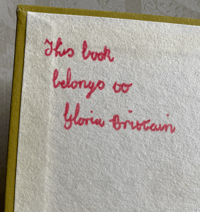 This book
belongs to
Gloria Brittain